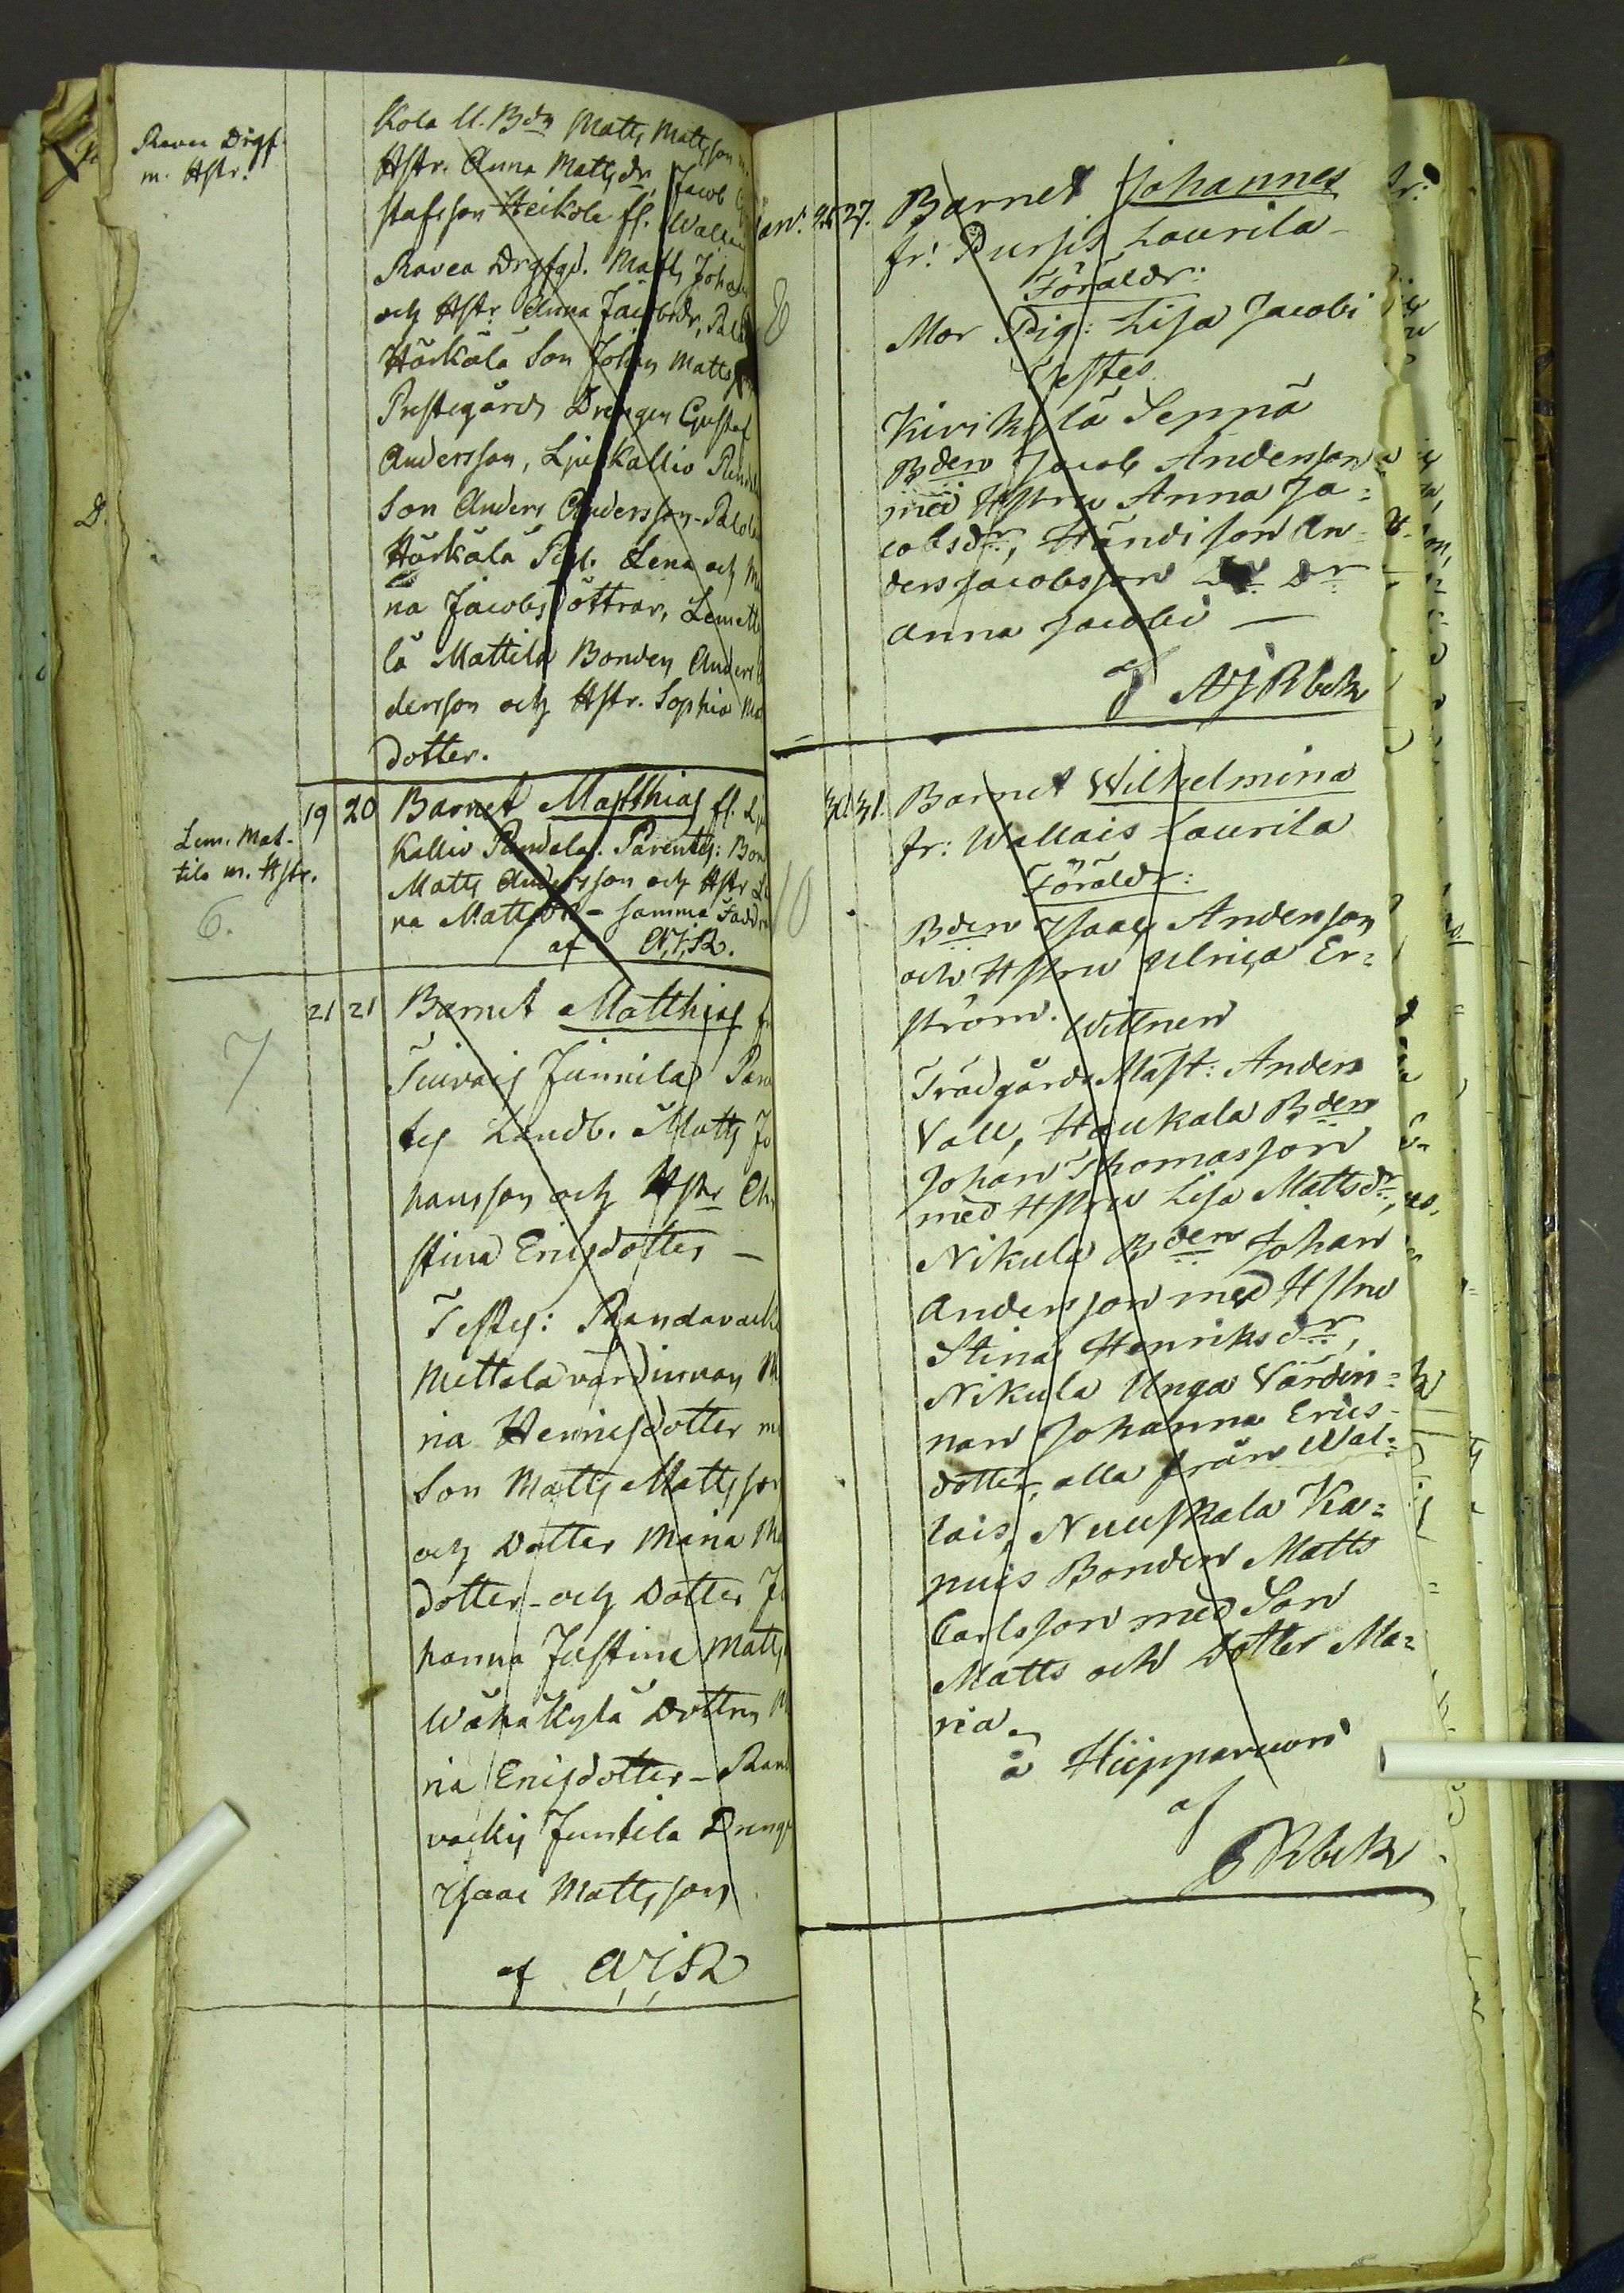 Ravea Drgf.
m. Hstr.
Kola U. Bdn Matts Mattsson
Hstr. Anna Mattsdr, Jacob
stafsson Heikola fl.
Ravea Drgfgd. Matts Johan
och Hstr Anna Jacobsdr,
Härkälä Son Johan Matts
Prestegårds Drengen Gustaf
Andersson, Ljuskallio
Son Anders Andersson
Härkälä Pigl. Lena och
na Jacobsdöttrar, Lemett
lä Mattila Bonden Anders
dersson och Hstr. Sophia
dotter.
Lem. Mat-
tila m. Hstr.
6.
19 20 Barnet Matthias fl.
Kallio Pundela. Parentes: Bon
Matts Andersson och Hstr
na Mattsdr - samma Faddr
af A,J,R.
7
21 21 Barnet Matthias fr
Junnila
tes Landb. Matts Jo
hansson och Hstr Chr
stina Ericsdotter —
Testes:
Mettala värdinnan
ria Henricsdotter
Son Matts Mattsson
och Dotter Maria
dotter - och Dotter Jo
hanna Justina Matts
Wähäkylä Dottren
ria Ericsdotter -
Juntila Dreng
Isaac Mattsson
af A,J,R
8
Janr. 26 27. Barnet Johannes
fr: Pursis Laurila -
Föräldr:
Mor Pig: Lisa Jacobi
Testes
Kirikylä Seppä
Bden Jacob Anderson
med Hstru Anna Ja=
cobsdr, Händi son An=
ders Jacobsson Dr
Anna Jacobi —
af AJRbck
10
30 31. Barnet Wilhelmina
fr: Wallais Laurila
Föräldr:
Bden Isaac Anderson
och Hstru Ulrica Er=
ström. Wittnen
Trädgårds Mäst: Anders
Vall, Haukala Bden
Johan Thomasson
med Hstru Lisa Mattsdr,
Nikula Bden Johan
Andersson med Hstru
Stina Henriksdr,
Nikula Unga Värdin=
nan Johanna Erics-
dotter, alla från Wal=
lais, Nuuskala Ka=
puis Bonden Matts
Carlsson med Son
Matts och Dotter Ma=
ria.
à Hiipparvori
af
Rbck